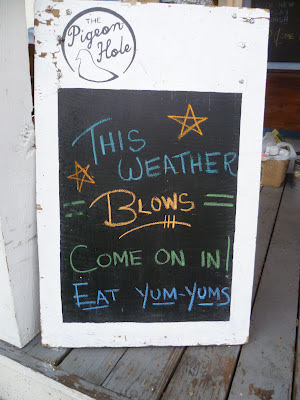 THE
Pigeon
Hole
THIS
WEATHER
= BLOWS =
COME ON IN!
EAT YUM-YUMS